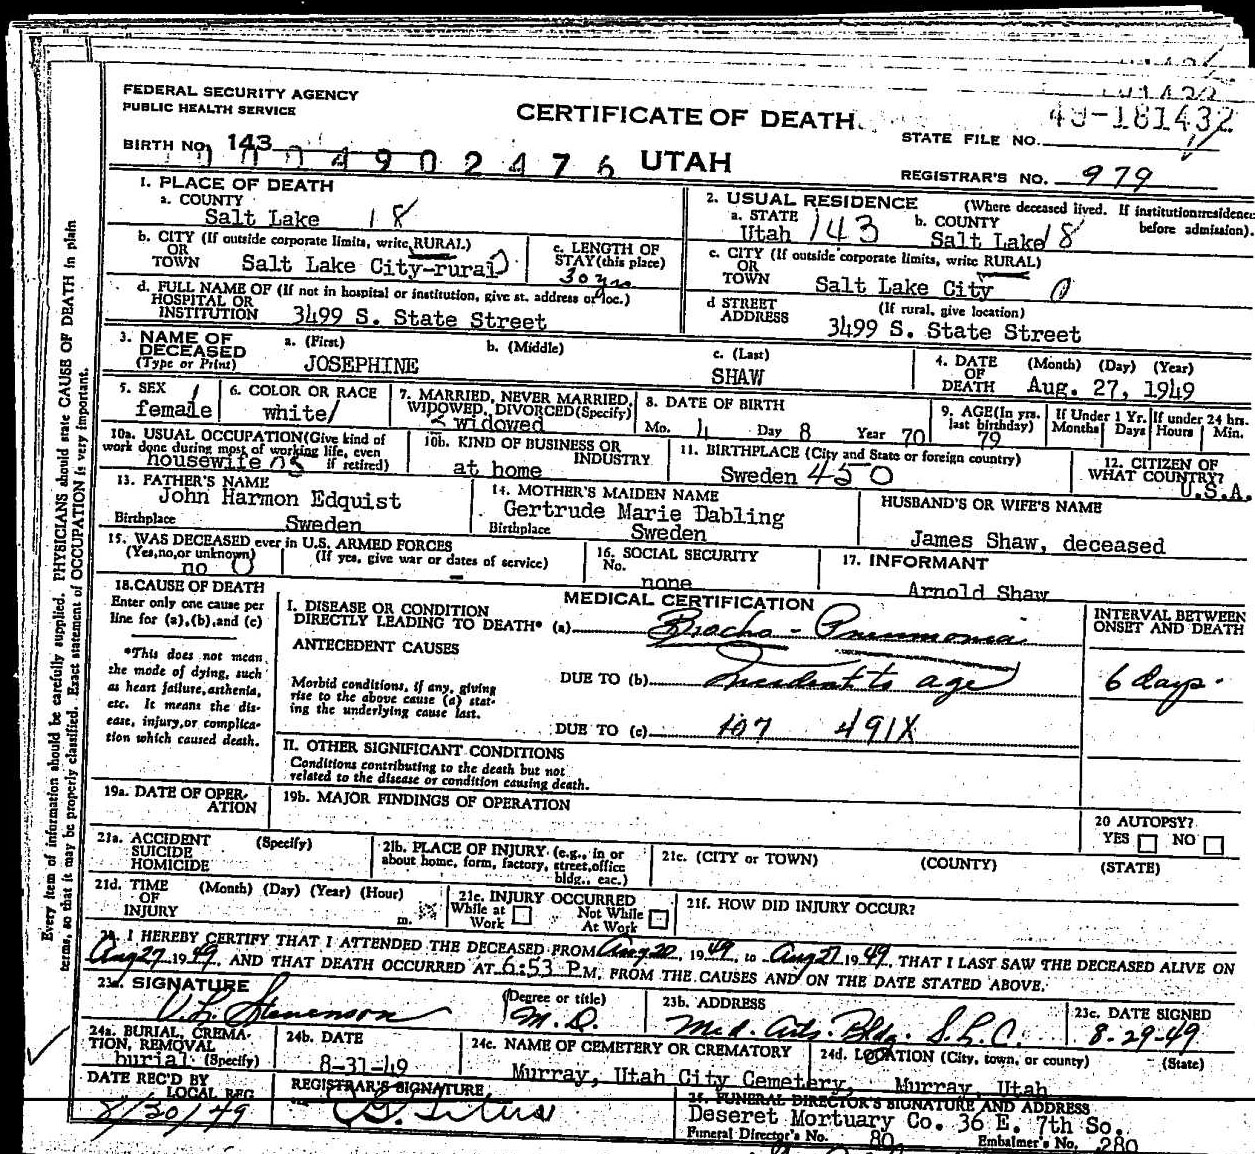 FEDERAL SECURITY AGENCY
PUBLIC HEALTH SERVICE
CERTIFICATE OF DEATH
STATE FILE NO. 49-181432
BIRTH NO. 143
0004902476 UTAH
REGISTRAR'S NO. 979
1. PLACE OF DEATH
a. COUNTY
Salt Lake 18
2. USUAL RESIDENCE (Where deceased lived. If institution: residence before admission).
a. STATE Utah 143 b. COUNTY Salt Lake 18
b. CITY (If outside corporate limits, write RURAL)
OR
TOWN Salt Lake City-rural 0
c. LENGTH OF
STAY (this place)
30 yrs.
c. CITY (If outside corporate limits, write RURAL)
OR
TOWN Salt Lake City 0
d. FULL NAME OF (If not in hospital or institution, give st. address or loc.)
HOSPITAL OR
INSTITUTION 3499 S. State Street
d STREET
ADDRESS (If rural, give location)
3499 S. State Street
3. NAME OF
DECEASED
(Type or Print)
a. (First) b. (Middle) c. (Last)
JOSEPHINE SHAW
4. DATE
OF
DEATH
(Month) (Day) (Year)
Aug. 27, 1949
5. SEX 1
female
6. COLOR OR RACE
white/
7. MARRIED, NEVER MARRIED,
WIDOWED, DIVORCED (Specify)
2 widowed
8. DATE OF BIRTH
Mo. 4 Day 8 Year 70
9. AGE (In yrs.
last birthday)
79
If Under 1 Yr.
Months Days
If under 24 hrs.
Hours Min.
10a. USUAL OCCUPATION (Give kind of
work done during most of working life, even
if retired)
housewife 05
10b. KIND OF BUSINESS OR
INDUSTRY
at home
11. BIRTHPLACE (City and State or foreign country)
Sweden 450
12. CITIZEN OF
WHAT COUNTRY?
U.S.A.
13. FATHER'S NAME
John Harmon Edquist
Birthplace Sweden
14. MOTHER'S MAIDEN NAME
Gertrude Marie Dabling
Birthplace Sweden
HUSBAND'S OR WIFE'S NAME
James Shaw, deceased
15. WAS DECEASED ever in U.S. ARMED FORCES
(Yes, no, or unknown) (If yes, give war or dates of service)
no 0 -
16. SOCIAL SECURITY
No.
none
17. INFORMANT
Arnold Shaw
18. CAUSE OF DEATH
Enter only one cause per
line for (a), (b), and (c)
*This does not mean
the mode of dying, such
as heart failure, asthenia,
etc. It means the dis-
ease, injury, or complica-
tion which caused death.
MEDICAL CERTIFICATION
I. DISEASE OR CONDITION
DIRECTLY LEADING TO DEATH* (a) Broncho-Pneumonia
ANTECEDENT CAUSES
Morbid conditions, if any, giving
rise to the above cause (a) stat-
ing the underlying cause last.
DUE TO (b) Incident to age
DUE TO (c) 107 491X
INTERVAL BETWEEN
ONSET AND DEATH
6 days.
II. OTHER SIGNIFICANT CONDITIONS
Conditions contributing to the death but not
related to the disease or condition causing death.
19a. DATE OF OPER-
ATION
19b. MAJOR FINDINGS OF OPERATION
20 AUTOPSY?
YES NO
21a. ACCIDENT
SUICIDE
HOMICIDE
(Specify)
21b. PLACE OF INJURY (e.g., in or
about home, form, factory, street, office
bldg., eac.)
21c. (CITY or TOWN) (COUNTY) (STATE)
21d. TIME
OF
INJURY
(Month) (Day) (Year) (Hour)
m.
21e. INJURY OCCURRED
While at
Work
Not While
At Work
21f. HOW DID INJURY OCCUR?
I HEREBY CERTIFY THAT I ATTENDED THE DECEASED FROM Aug 20, 1949, to Aug 27 1949, THAT I LAST SAW THE DECEASED ALIVE ON
Aug 27 1949, AND THAT DEATH OCCURRED AT 6:53 P.M. FROM THE CAUSES AND ON THE DATE STATED ABOVE.
23a. SIGNATURE
V. L. Stevenson
(Degree or title)
M.D.
23b. ADDRESS
Med. Arts. Bldg. S.L.C.
23c. DATE SIGNED
8-29-49
24a. BURIAL, CREMA-
TION, REMOVAL
burial (Specify)
24b. DATE
8-31-49
24c. NAME OF CEMETERY OR CREMATORY
Murray, Utah City Cemetery,
24d. LOCATION (City, town, or county) (State)
Murray, Utah
DATE REC'D BY
LOCAL REG
8/30/49
REGISTRAR'S SIGNATURE
25. FUNERAL DIRECTOR'S SIGNATURE AND ADDRESS
Deseret Mortuary Co. 36 E. 7th So.
Funeral Director's No. 80 Embalmer's No. 280
Every item of information should be carefully supplied. PHYSICIANS should state CAUSE OF DEATH in plain
terms, so that it may be properly classified. Exact statement of OCCUPATION is very important.